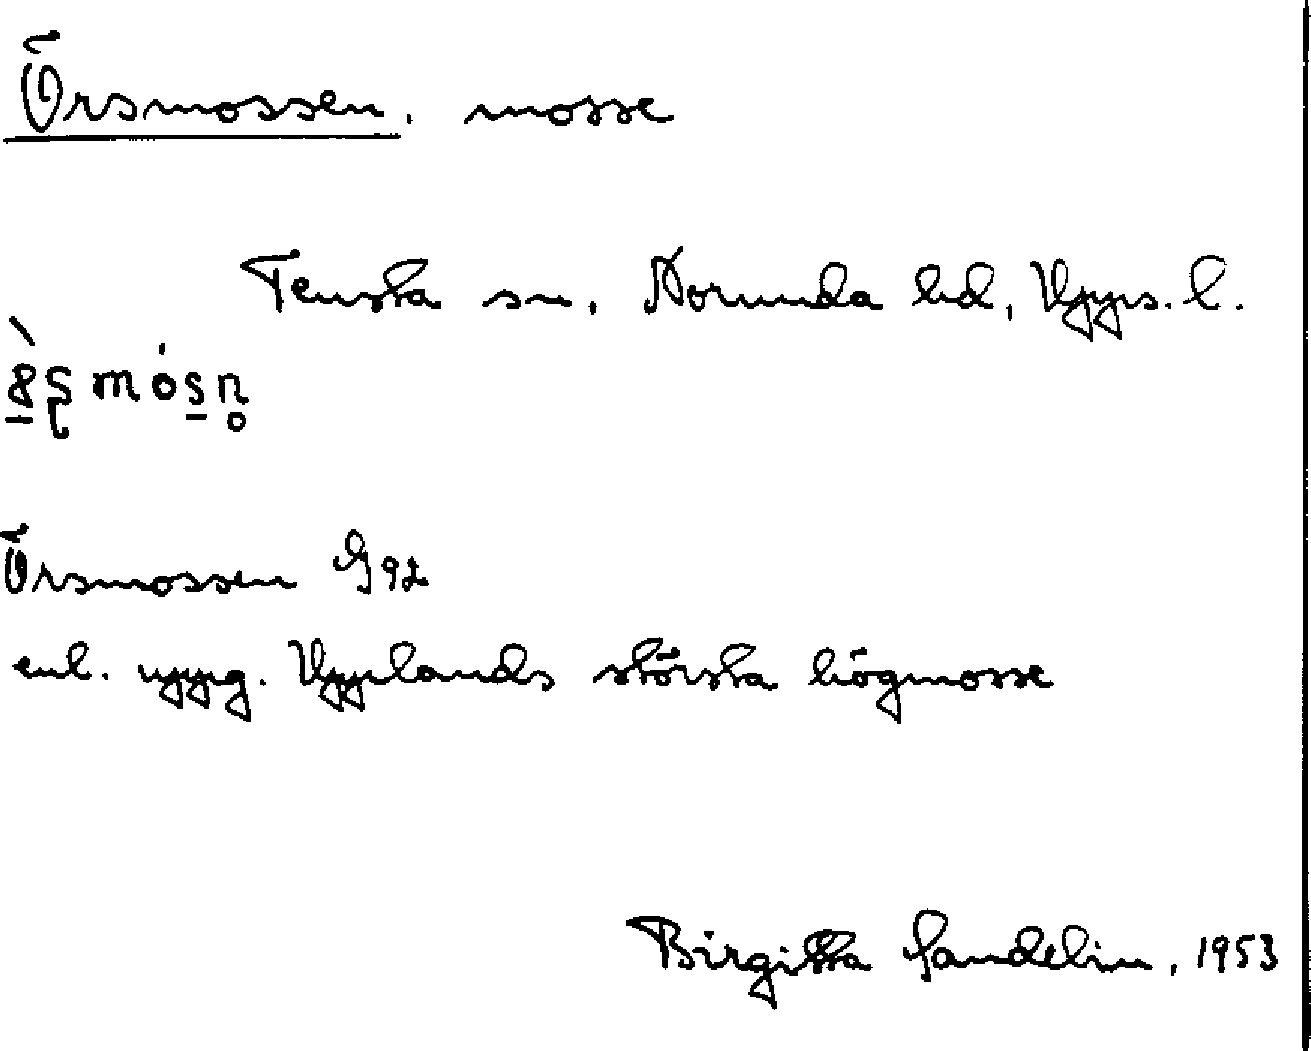 Örsmossen. mosse
Tensta sn. Norunda hd, Upps. l.
Örsmossen G92
enl. uppg. Upplands största högmosse
Birgitta Sandelin, 1953